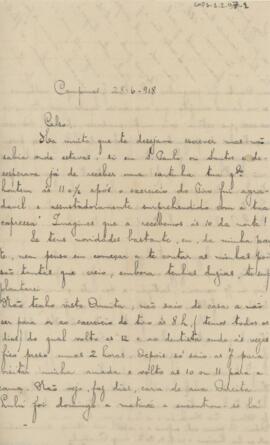 Campinas, 28-6-918
Celso.
Ha muito que te desejava escrever mas não
sabia onde estavas, si em S. Paulo ou Santos e de-
sesperava já de receber uma cartinha tua qdo
hontem ás 11 1/2 após o exercicio do tiro fui agra-
davel e surprehendido com a tua
expresso! Imagines que a recebemos ás 10 da noite!
Se tens novidades bastante, eu, da minha par-
te, nem penso em começar a te contar as minhas por
são tantas que creio, embora tenhas
Não tenho visto não saio de casa a não
ser para ir ao exercicio de tiro ás 8 h. (temos todos os
dias) do qual volto as 12 e ao dentista onde ás vezes
fico preso umas 2 horas. Depois só saio as 7 para
visitar minha amada e volto as 10 ou 11 para a
cama. Não vejo, faz dias, cara de
foi domingo a matinée e encontrou-se lá